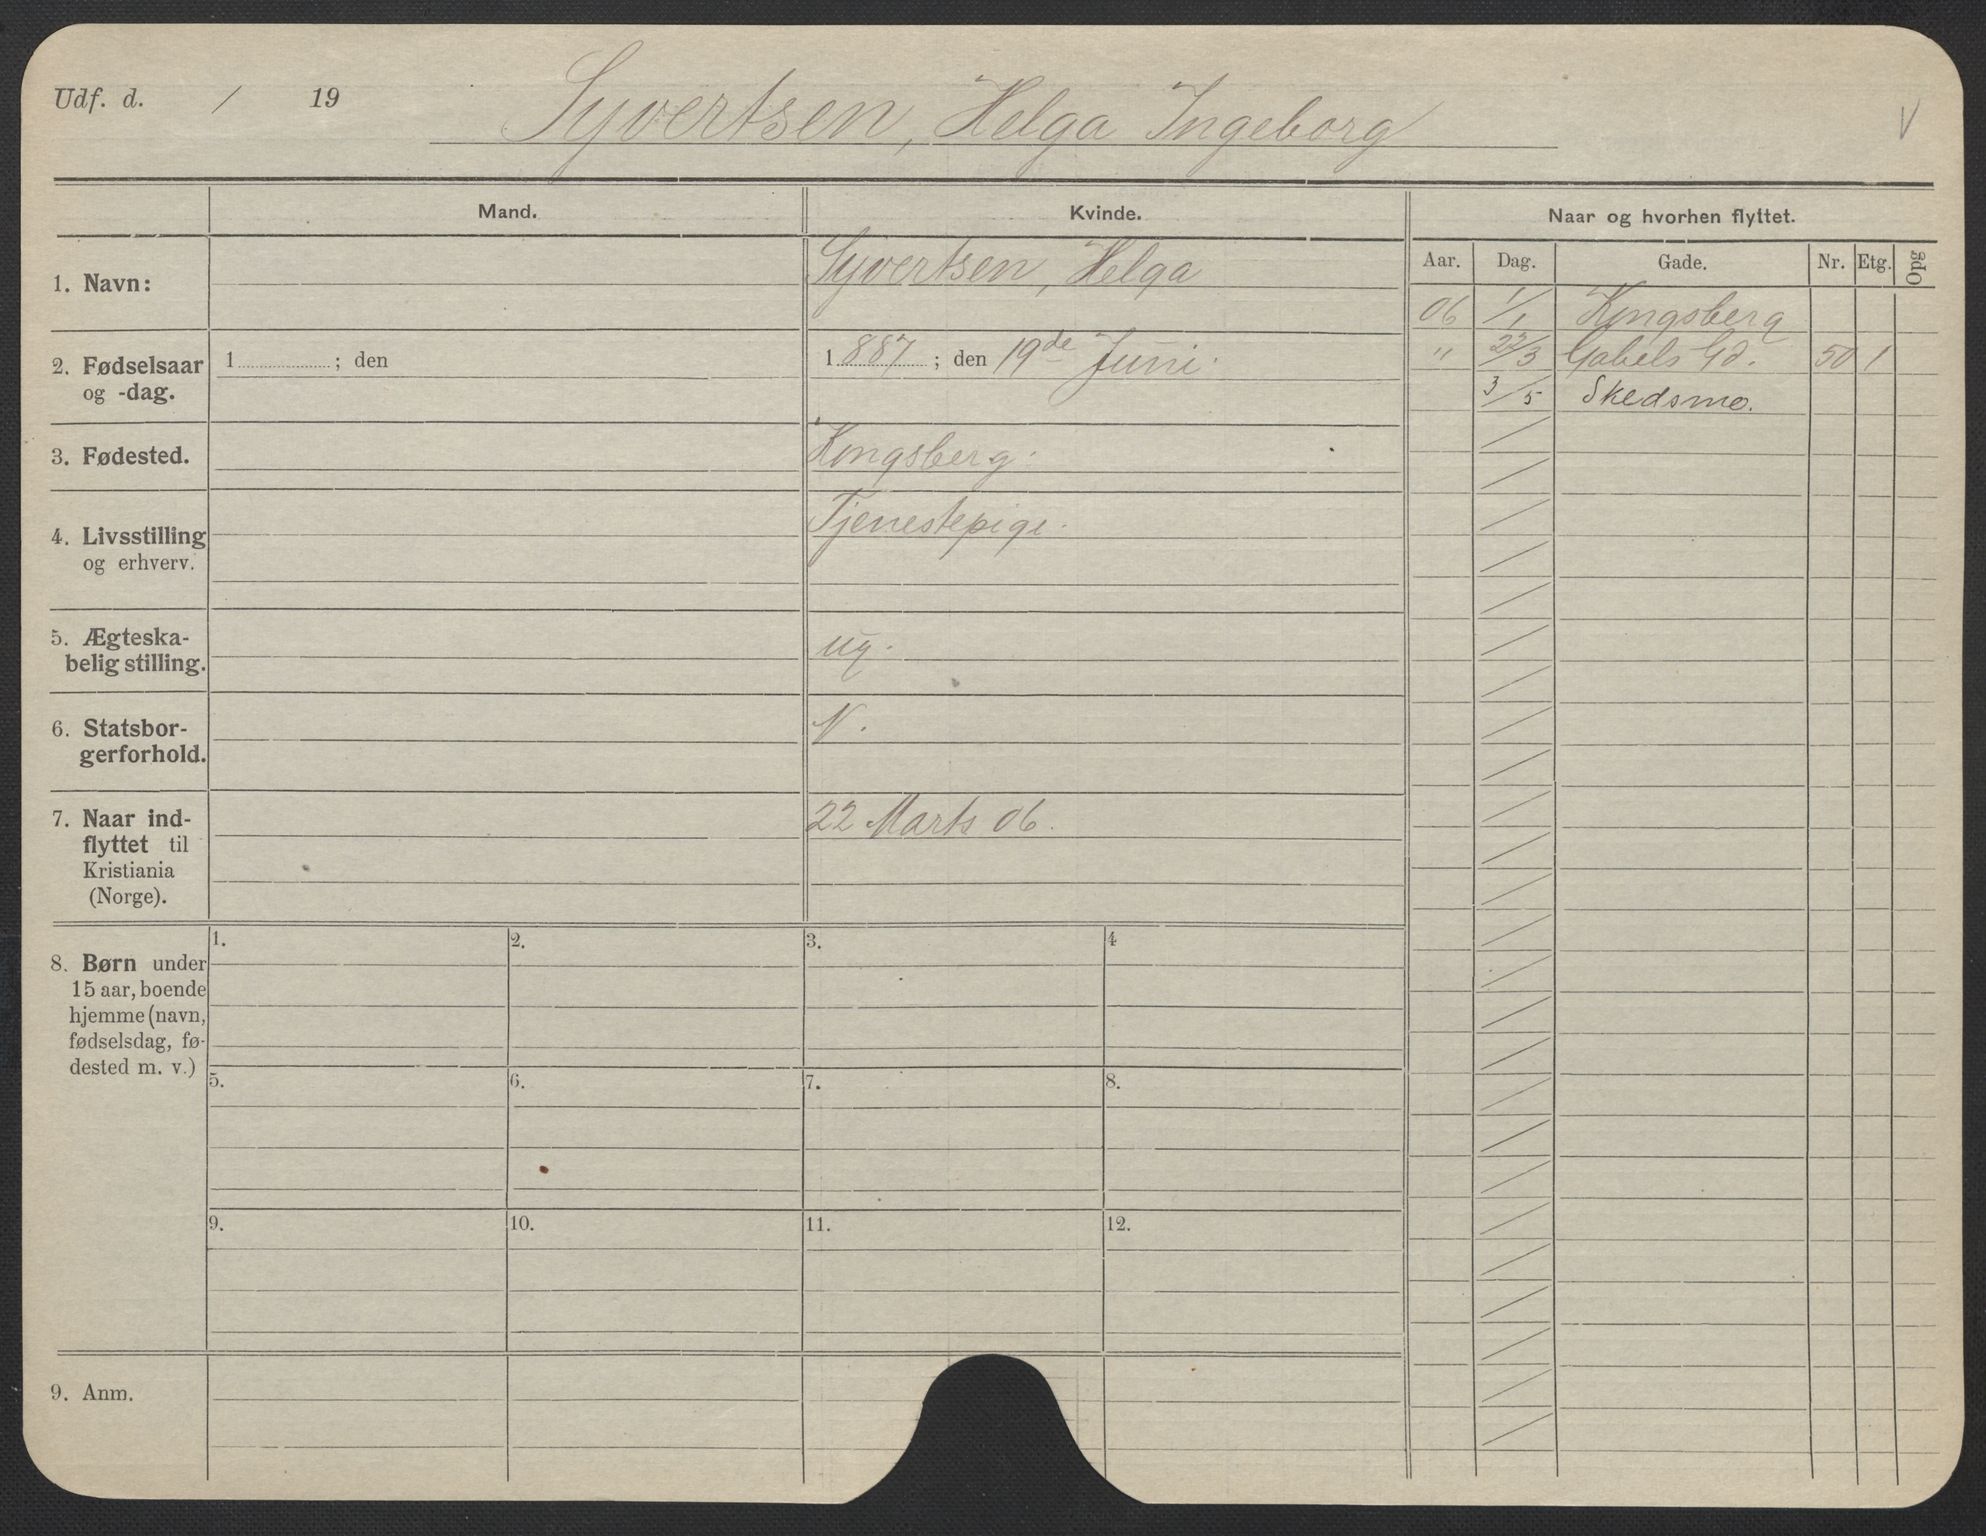 Udf. d. / 19 Syvertsen, Helga Ingeborg V
Mand. Kvinde. Naar og hvorhen flyttet.
Aar. Dag. Gade. Nr. Etg. Opg
1. Navn: Syvertsen, Helga
06 1/1 Kongsberg
" 22/3 Gabels Gd. 50 1
3/5 Skedsmo.
2. Fødselsaar og -dag.
1 ; den
1 887 ; den 19de Juni.
3. Fødested. Kongsberg.
4. Livsstilling og erhverv.
Tjenestepige.
5. Ægteska-
belig stilling.
ug.
6. Statsbor-
gerforhold.
N.
7. Naar ind-
flyttet til
Kristiania
(Norge).
22 Marts 06.
8. Børn under
15 aar, boende
hjemme (navn,
fødselsdag, fø-
dested m. v.)
1. 2. 3. 4
5. 6. 7. 8.
9. 10. 11. 12.
9. Anm.